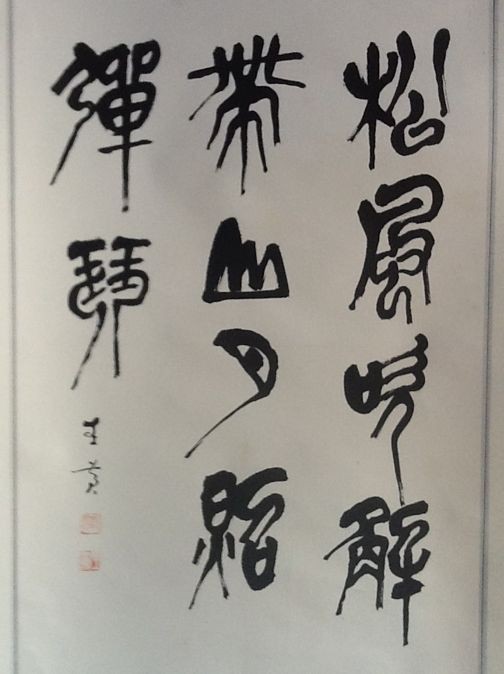 松風吹解
帶山月照
彈琴